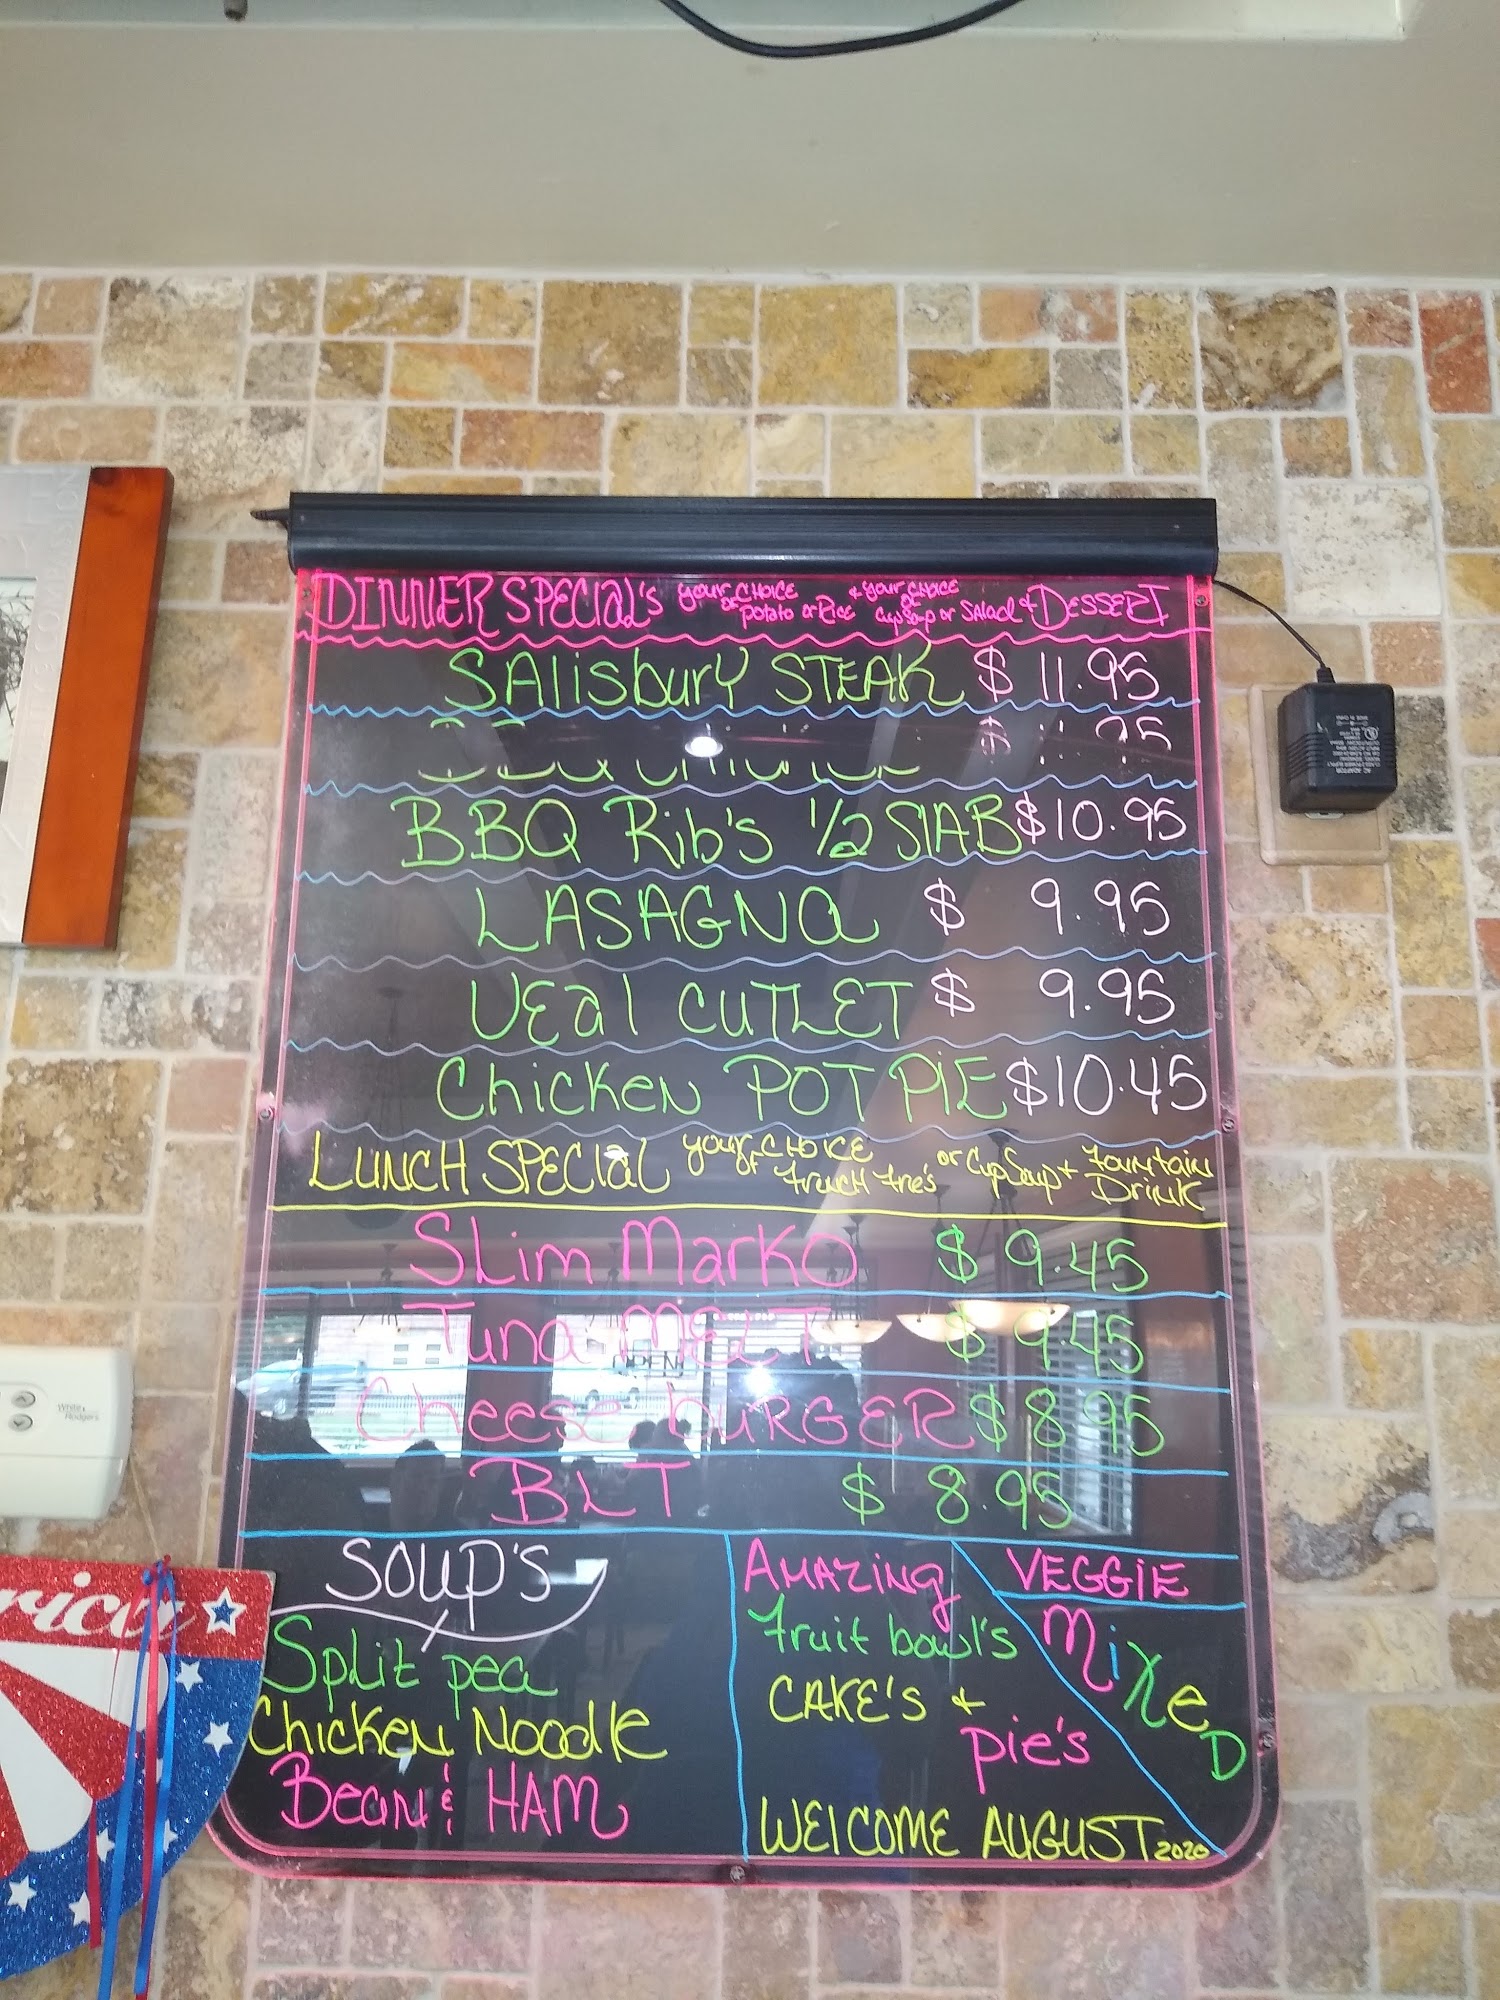 DINNER SPECIAL'S your CHOICE OF potato or Rice + your CHOICE OF cup Soup or Salad + DESSERT
SAlisbury STEAK $ 11.95
$ 11.95
BBQ Rib's 1/2 SlAB $10.95
LASAGNa $ 9.95
VEal CUTLET $ 9.95
Chicken POT PIE $10.45
LUNCH SPECIal your CHOICE OF French Frie's or Cup Soup + Fountain Drink
SLim Marko $ 9.45
Tuna MELT $ 9.45
Cheese burGER $ 8.95
BLT $ 8.95
SOUP'S
Split pea
Chicken Noodle
Bean & HAM
AMAZING
Fruit bowl's
CAKE'S +
pie's
WELCOME AUGUST 2020
VEGGIE
MixeD
rica
White Rodgers
OPEN